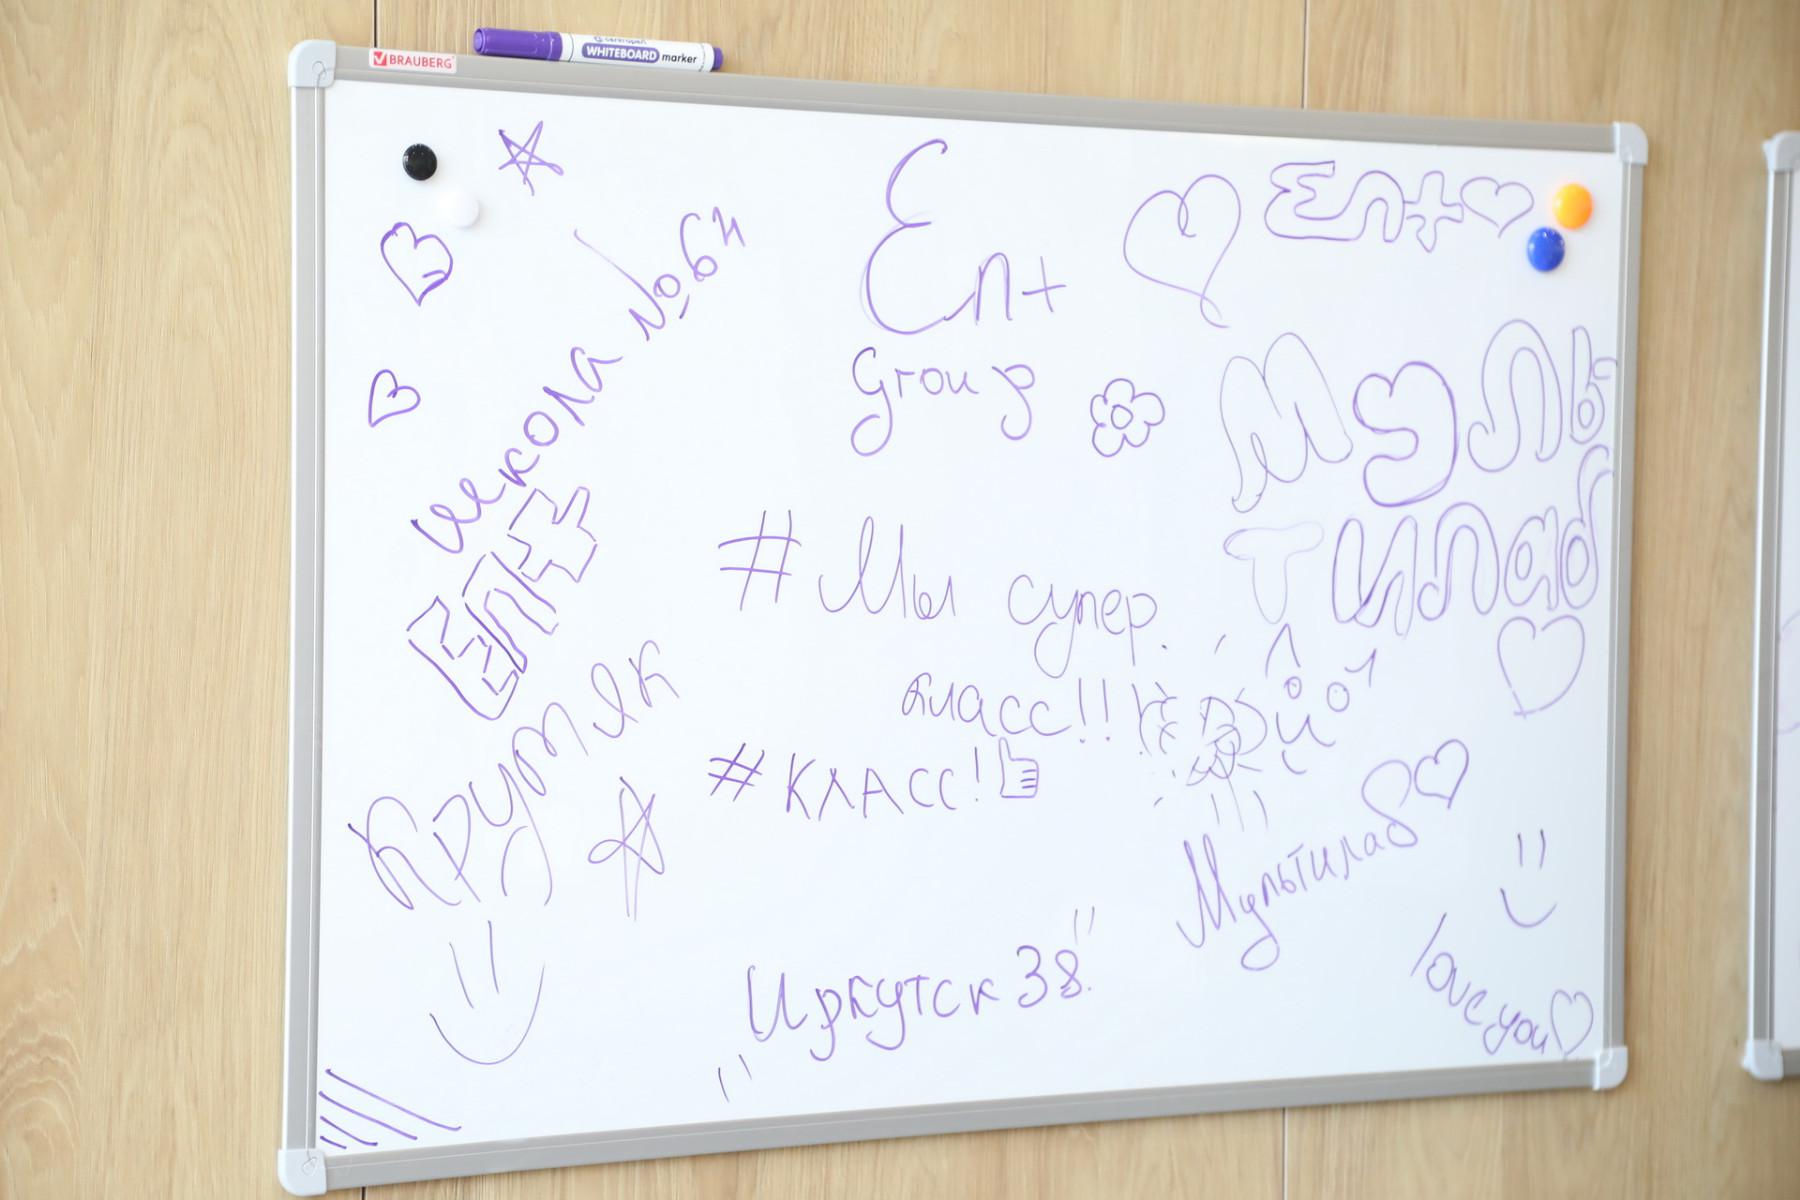 BRAUBERG
centropen
WHITEBOARD marker
En+
group
En+
школа №64
En+
Муль
тилаб
#Мы супер.
класс!!
#КЛАСС!
Крутяк
Мультилаб
„Иркутск 38."
love you